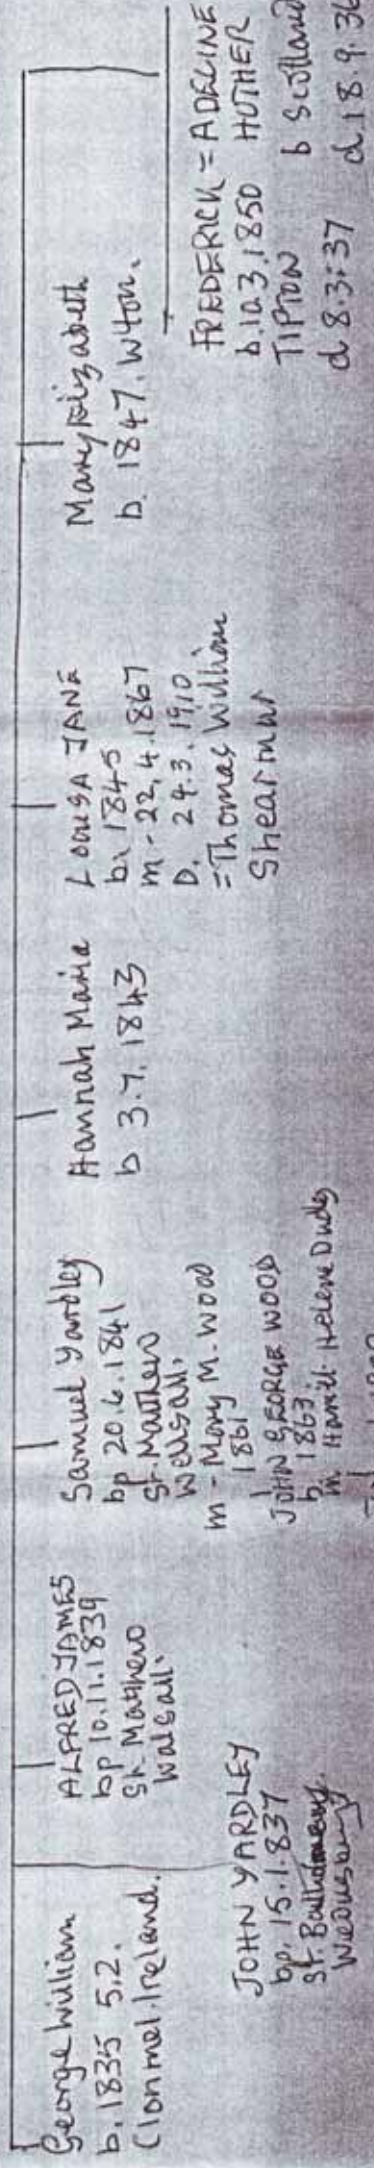 George William
b. 1835 5.2.
Clonmel. Ireland.
JOHN YARDLEY
bp. 15.1.837
St. Bartholomews
Wednesbury
ALFRED JAMES
bp 10.11.1839
St. Matthew
Walsall.
Samuel Yardley
bp 20.6.1841
St. Matthew
Walsall.
m - Mary M. WOOD
1861
JOHN GEORGE WOOD
b. 1863.
m. Helene Dudley
Hannah Maria
b 3.7.1843
LOUISA JANE
b. 1845
m - 22.4.1867
D. 24.3.1910
= Thomas William
Shearmur
Mary Elizabeth
b. 1847. Wton.
FREDERICK = ADELINE
b. 10.3.1850 HOTHER
TIPTON b Scotland
d 8.3.37 d 18.9.36